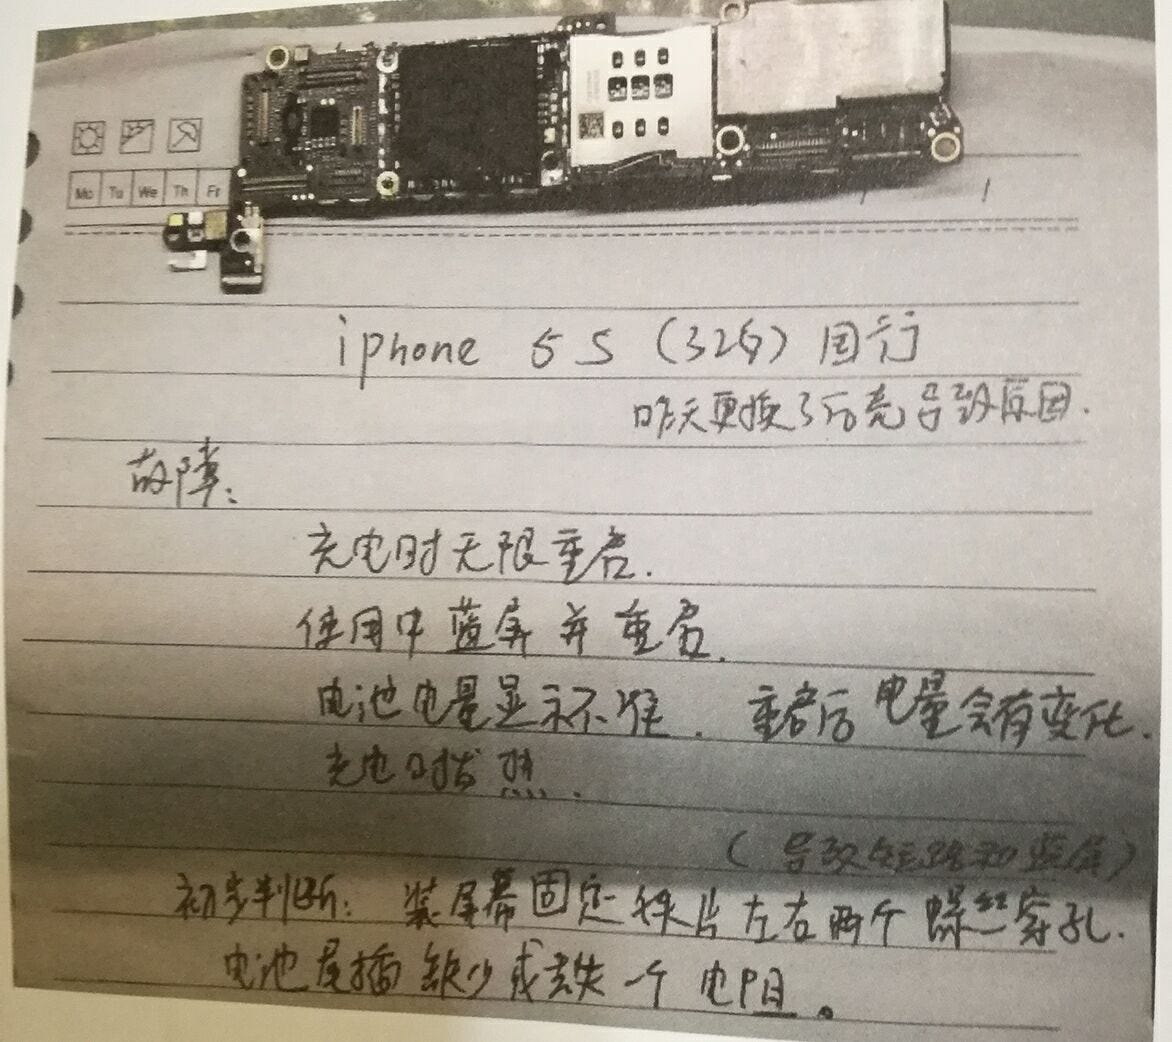 Mo Tu We Th Fr
iphone 5S (32G) 国行
昨天更换了后壳导致原因.
故障:
充电时无限重启.
使用中蓝屏并重启.
电池电量显示不准. 重启后电量会有变化.
充电时发热.
(导致短路和蓝屏)
初步判断: 装屏幕固定铁片左右两个螺丝穿孔.
电池尾插缺少或丢失一个电阻。